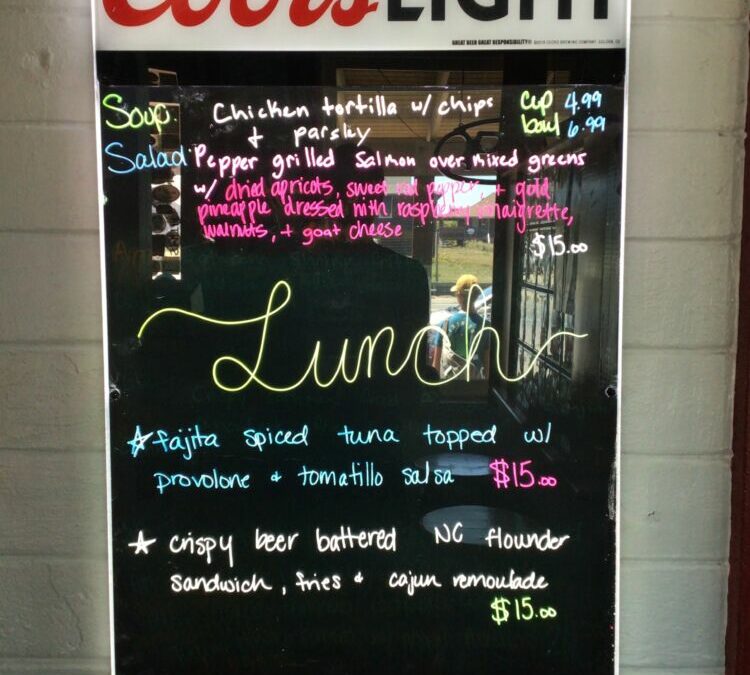 Coors LIGHT
GREAT BEER GREAT RESPONSIBILITY®
Soup. Chicken tortilla w/ chips cup 4.99
+ parsley bowl 6.99
Salad Pepper grilled Salmon over mixed greens
w/ dried apricots, sweet red pepper, + gold
pineapple dressed with raspberry vinaigrette,
walnuts, + goat cheese
$15.00
Lunch
☆ fajita spiced tuna topped w/
provolone + tomatillo salsa $15.00
☆ crispy beer battered NC flounder
sandwich, fries + cajun remoulade
$15.00